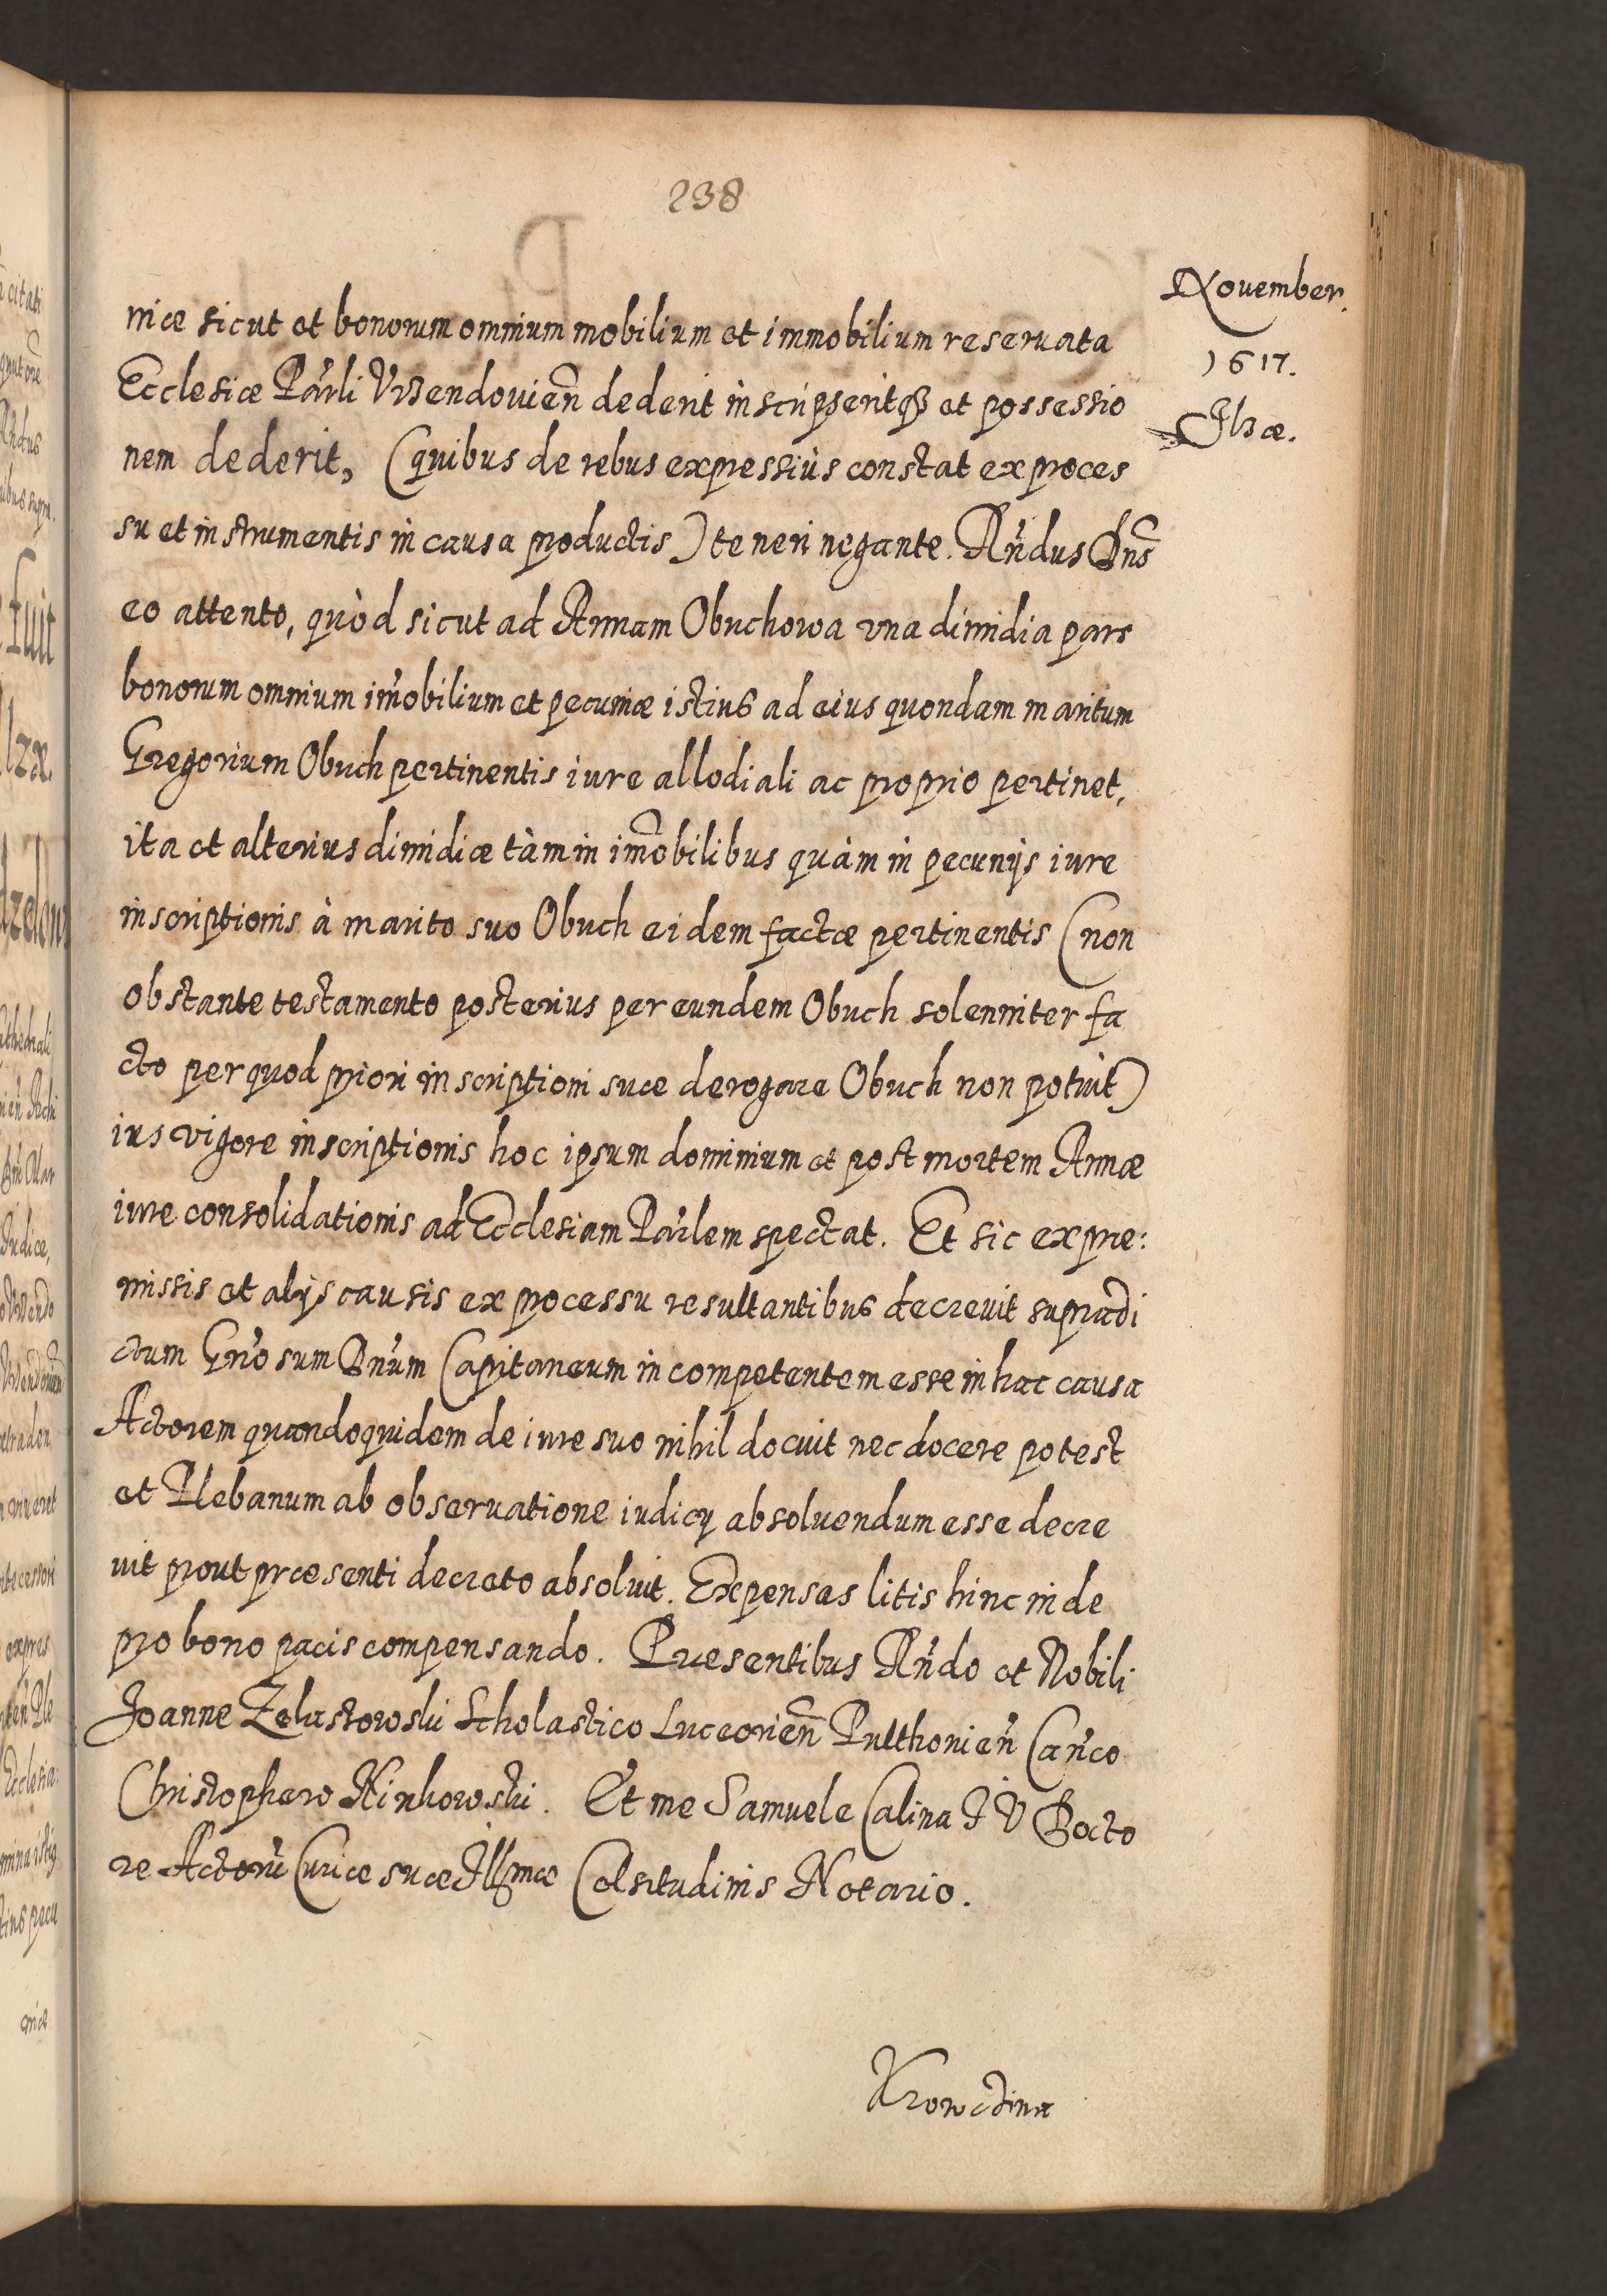 238
November.
1617.
Ilzæ.
niæ sicut et bonorum omnium mobilium et immobilium reseruata
Ecclesiæ Pärli Vrzendouień dederit inscripseritq3 et possessio
nem dederit, (quibus de rebus expressiùs constat ex proces
su et instrumentis in causa productis) teneri negante. Rńdus Dns
eo attento, quòd sicut ad Annam Obuchowa vna dimidia pars
bonorum omnium im̃obilium et pecuniæ istius ad eius quondam maritum
Gregorium Obuch pertinentis iure allodiali ac proprio pertinet,
ita et alterius dimidiæ tàm in im̃obilibus quàm in pecunijs iure
inscriptionis à marito suo Obuch eidem factæ pertinentis (non
obstante testamento posterius per eundem Obuch solenniter fa
cto per quod priori inscriptioni suæ derogare Obuch non potuit)
ius vigore inscriptionis hoc ipsum dominium et post mortem Annæ
iure consolidationis ad Ecclesiam Pärlem spectat. Et sic ex pre:
missis et alijs causis ex processu resultantibus decreuit supradi
ctum Gn̄osum Dn̄um Capitaneum incompetentem esse in hac causa
Actorem quandoquidem de iure suo nihil docuit nec docere potest
et Plebanum ab obseruatione iudicy absoluendum esse decre
uit prout præsenti decreto absoluit. Expensas litis hinc inde
pro bono pacis compensando. Præsentibus Rńdo et Nobili
Joanne Zelastowski Scholastico Luceorień Pulthonień Cań̃co
Christophero Ninkowski. Et me Samuele Calina I V Docto
re Actorū Curiæ suæ Illmæ Celsitudinis Notario.